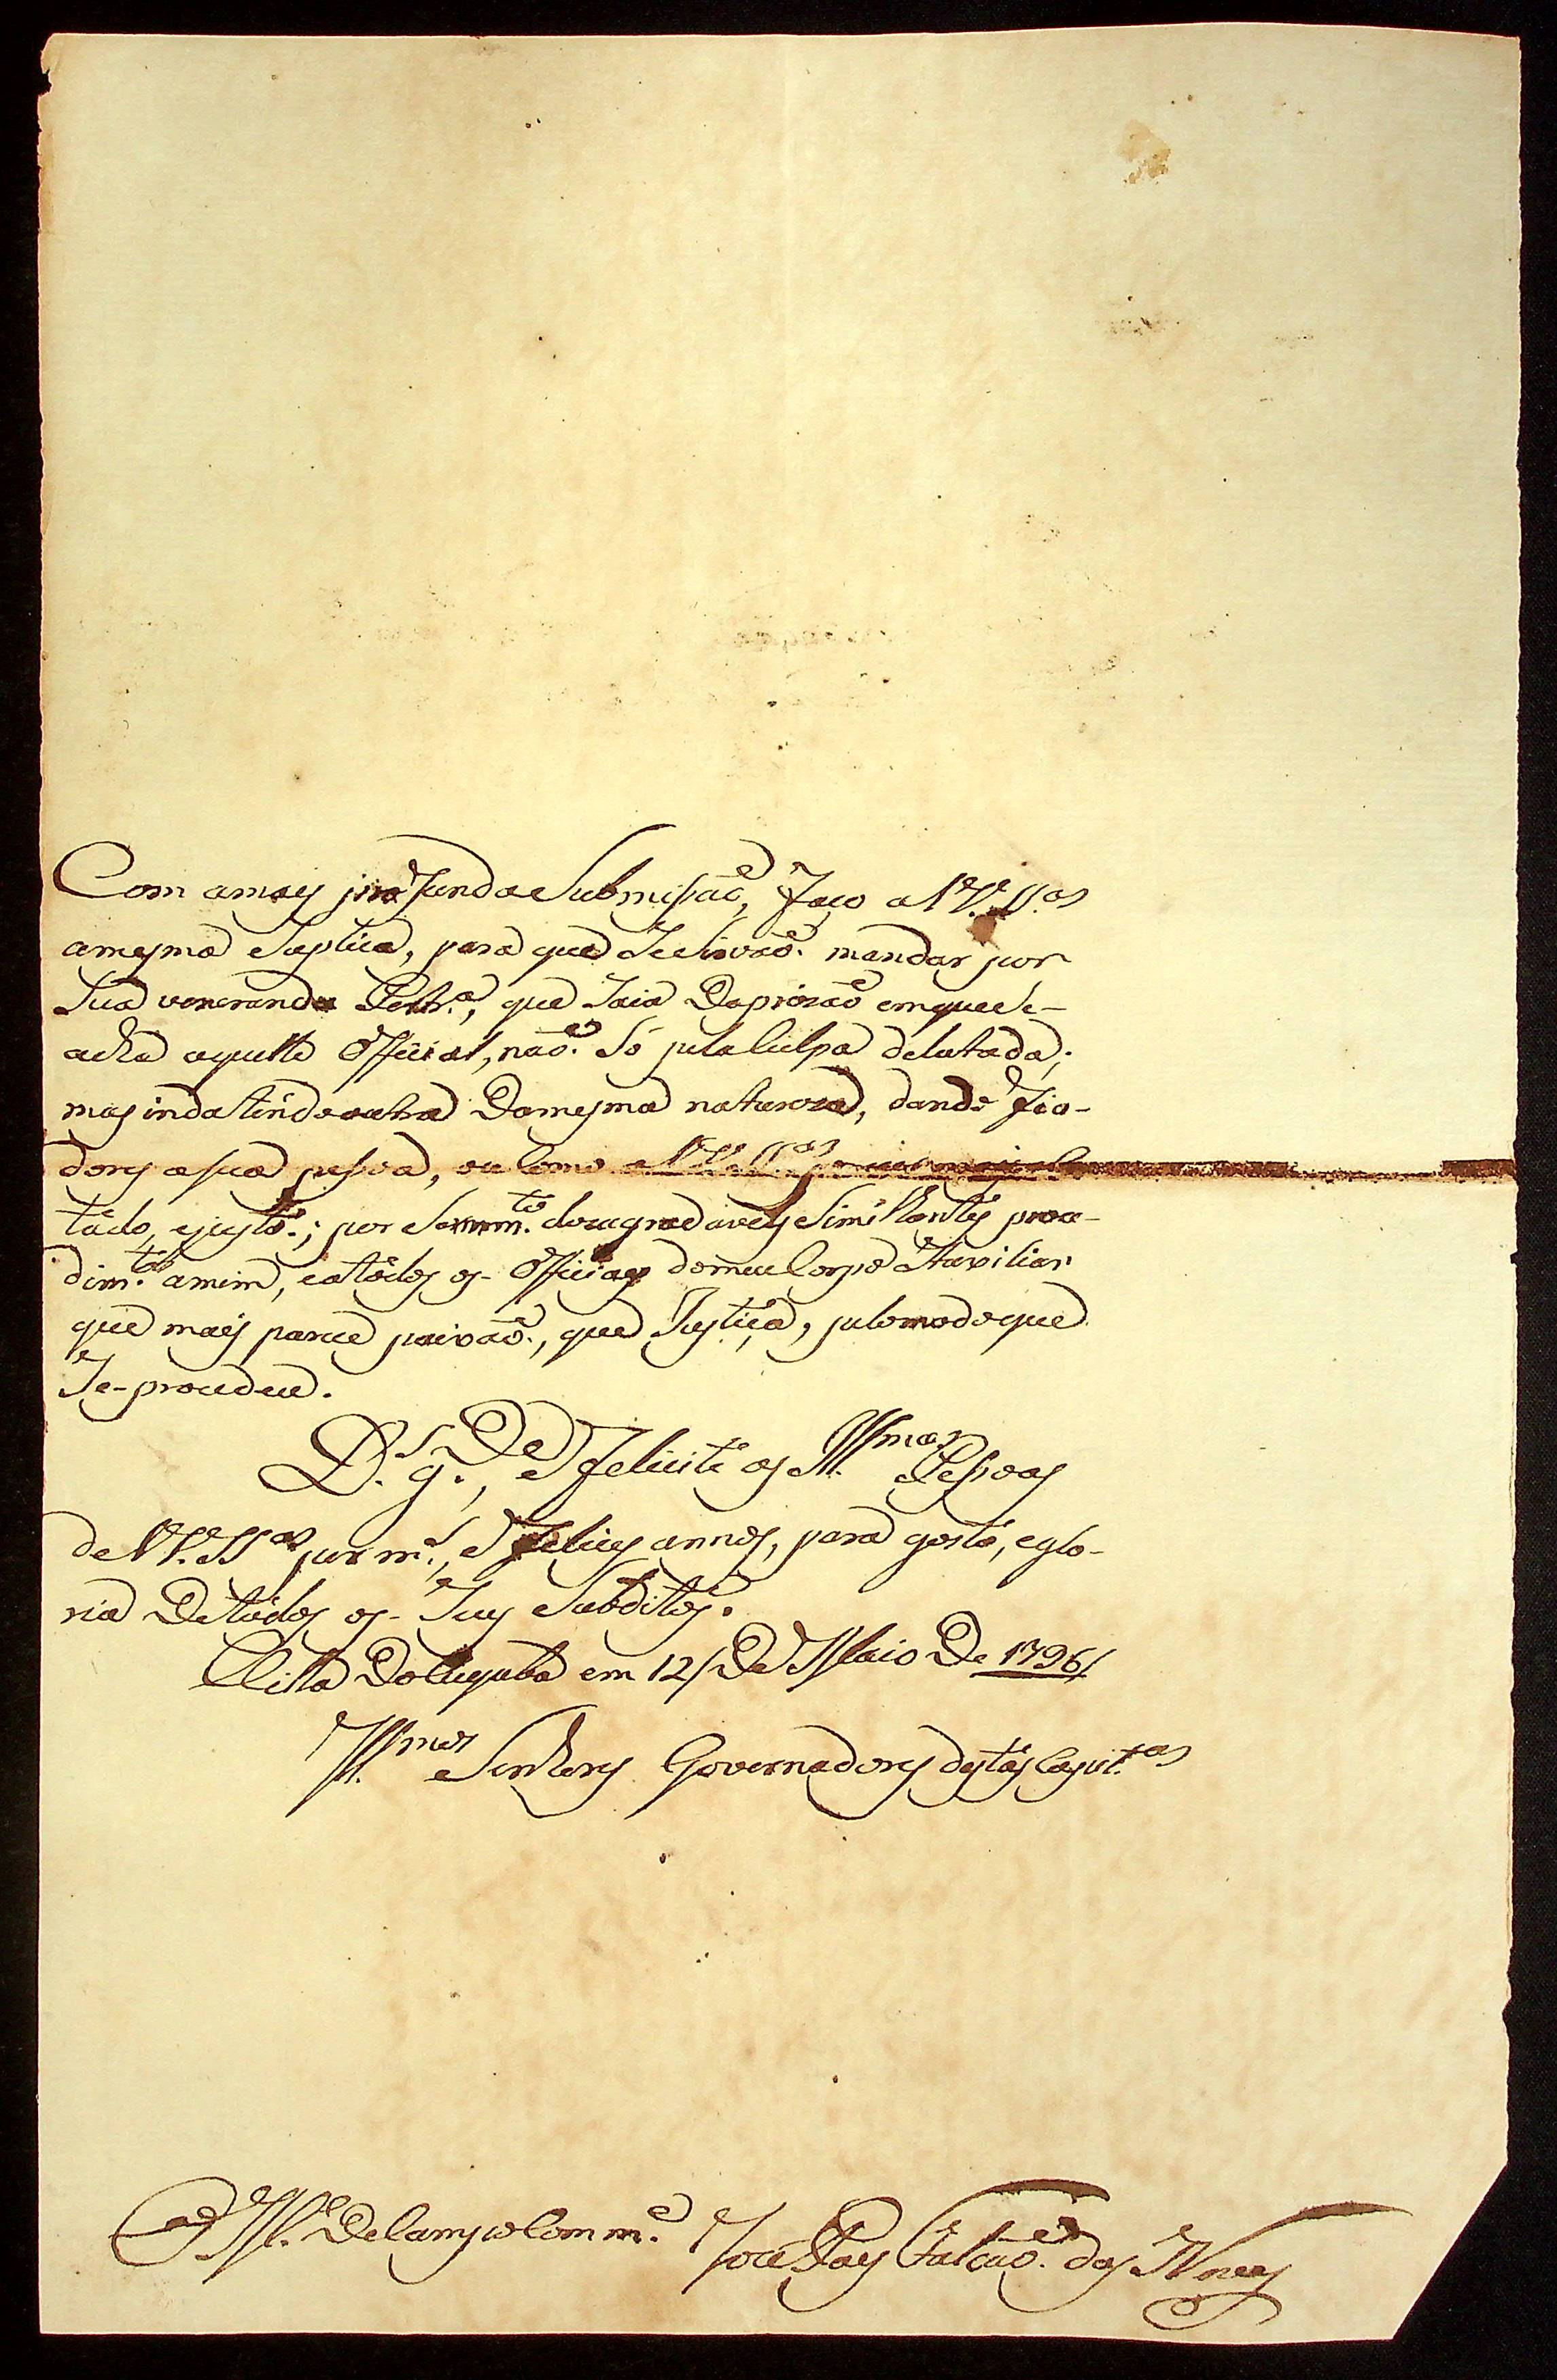 Com amays profunda Submisaõ, faço a VV. SS.as
amesma Suplica, para que Sesirvaõ. mandar por
Sua veneranda Portr.a, que Saia Daprizaõ emquese-
acha aquelle Official, naõ. Só pelaculpa delatada;
mas indatendooutra Damesma natureza, dando fia-
dores asua pesoa, ou como a VV. SS.as
tádo, ejusto.; por Serem m.to dezagradaveis Similhantes proce-
dim.tos amim, eatódos os- Officiaes domeuCorpo Auxiliar
que mais parece paixaõ., que Justiça, pelomodoque
Se-procedeu.
D.s g.de, e Felicite as Ill.mas Pesoas
de VV. SS.as por m.s, e Felices annos, para gosto, eglo-
ria Detódos os- Seus Subditos.
Villa DoPiguba em 12/ De Maio De 1796/
Ill.mos Senhores Governadores destas Capit.as
O M.e DeCampo Com m.e José Paes Falcaõ. das Neves